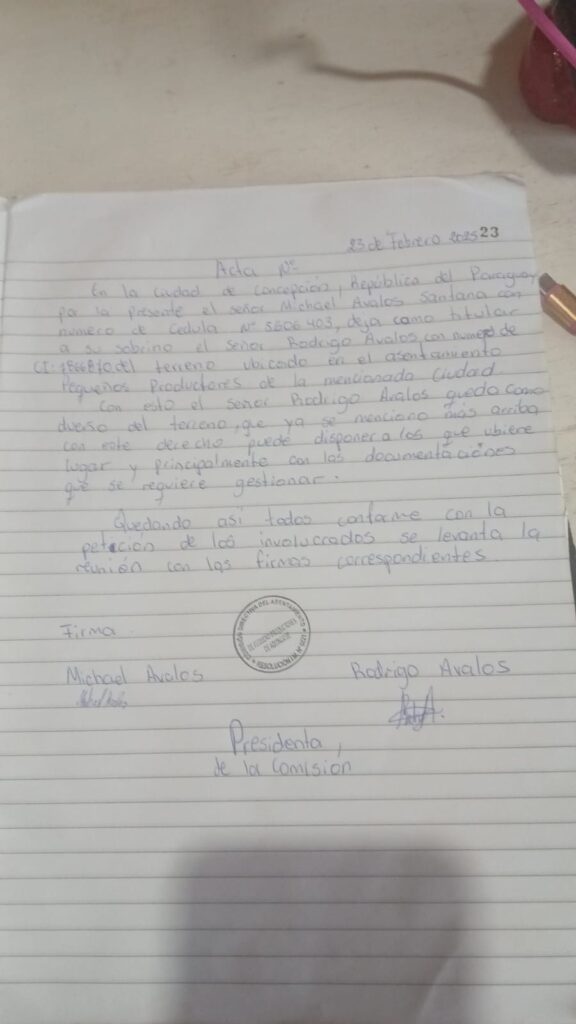 23
23 de Febrero 2025
Acta Nº
En la Ciudad de Concepción, República del Paraguay,
por la presente el señor Michael Avalos Santana con
numero de Cedula Nº 5606403, deja como titular
a su sobrino el Señor Rodrigo Avalos, con numero de
CI: del terreno ubicado en el asentamiento
Pequeños Productores de la mencionada Ciudad
Con esto el señor Rodrigo Avalos queda como
dueño del terreno, que ya se menciono más arriba
con este derecho puede disponer a los que ubiere
lugar y principalmente con las documentaciones
que se requiere gestionar.
Quedando así todos conforme con la
petición de los involucrados se levanta la
reunión con las firmas correspondientes
Firma
COMISIÓN DIRECTIVA DEL ASENTAMIENTO
RESOLUCIÓN
Michael Avalos
Rodrigo Avalos
Presidenta,
de la Comisión